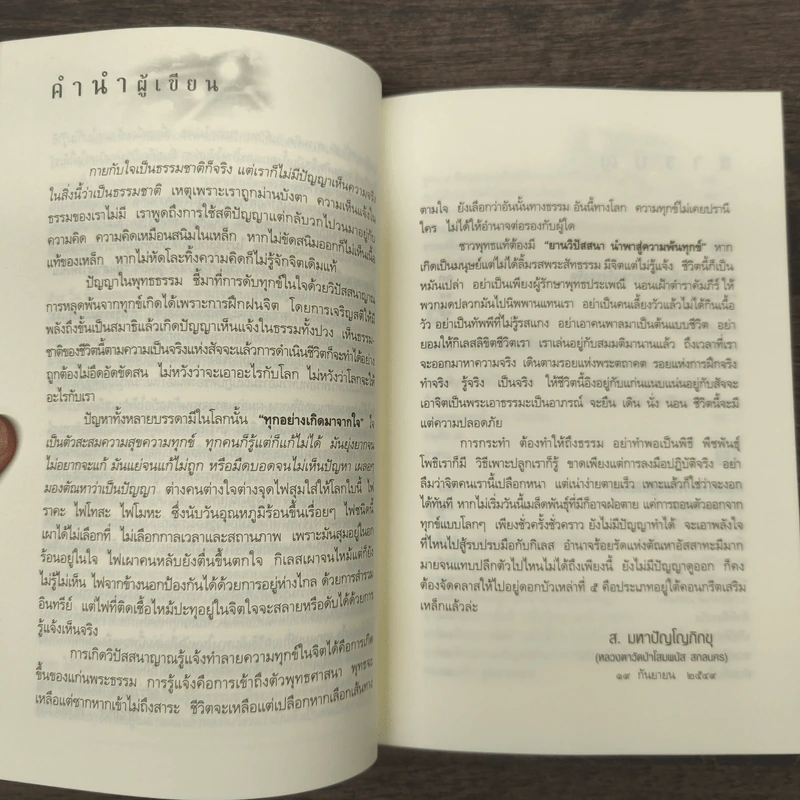 คำนำผู้เขียน
กายกับใจเป็นธรรมชาติก็จริง แต่เราก็ไม่มีปัญญาเห็นความจริง
ในสิ่งนี้ว่าเป็นธรรมชาติ เหตุเพราะเราถูกม่านบังตา ความเห็นแจ้งใน
ธรรมของเราไม่มี เราพูดถึงการใช้สติปัญญาแต่กลับวกไปวนมาอยู่กับ
ความคิด ความคิดเหมือนสนิมในเหล็ก หากไม่ขัดสนิมออกก็ไม่เห็นเนื้อ
แท้ของเหล็ก หากไม่หัดละทิ้งความคิดก็ไม่รู้จักจิตเดิมแท้
ปัญญาในพุทธธรรม ชี้มาที่การดับทุกข์ในใจด้วยวิปัสสนาญาณ
การหลุดพ้นจากทุกข์เกิดได้เพราะการฝึกฝนจิต โดยการเจริญสติให้มี
พลังถึงขั้นเป็นสมาธิแล้วเกิดปัญญาเห็นแจ้งในธรรมทั้งปวง เห็นธรรม-
ชาติของชีวิตนี้ตามความเป็นจริงแห่งสัจจะแล้วการดำเนินชีวิตก็จะทำได้อย่าง
ถูกต้องไม่อึดอัดขัดสน ไม่หวังว่าจะเอาอะไรกับโลก ไม่หวังว่าโลกจะให้
อะไรกับเรา
ปัญหาทั้งหลายบรรดามีในโลกนั้น “ทุกอย่างเกิดมาจากใจ” ใจ
เป็นตัวสะสมความสุขความทุกข์ ทุกคนก็รู้แต่ก็แก้ไม่ได้ มันยุ่งยากจน
ไม่อยากจะแก้ มันแย่จนแก้ไม่ถูก หรือมืดบอดจนไม่เห็นปัญหา เผลอ
มองตัณหาว่าเป็นปัญญา ต่างคนต่างใจต่างจุดไฟสุมใส่ให้โลกใบนี้ ไฟ
ราคะ ไฟโทสะ ไฟโมหะ ซึ่งนับวันอุณหภูมิร้อนขึ้นเรื่อยๆ ไฟชนิดนี้
เผาได้ไม่เลือกที่ ไม่เลือกกาลเวลาและสถานภาพ เพราะมันสุมอยู่ในอก
ร้อนอยู่ในใจ ไฟเผาคนหลับยังตื่นขึ้นตกใจ กิเลสเผาจนไหม้แต่ก็ยัง
ไม่รู้ไม่เห็น ไฟจากข้างนอกป้องกันได้ด้วยการอยู่ห่างไกล ด้วยการสำรวม
อินทรีย์ แต่ไฟที่ติดเชื้อไหม้ปะทุอยู่ในจิตใจจะสลายหรือดับได้ด้วยการ
รู้แจ้งเห็นจริง
การเกิดวิปัสสนาญาณรู้แจ้งทำลายความทุกข์ในจิตได้คือการเกิด
ขึ้นของแก่นพระธรรม การรู้แจ้งคือการเข้าถึงตัวพุทธศาสนา พุทธจะ
เหลือแต่ซากหากเข้าไม่ถึงสาระ ชีวิตจะเหลือแต่เปลือกหากเลือกเส้นทาง
ตามใจ ยังเลือกว่าอันนั้นทางธรรม อันนี้ทางโลก ความทุกข์ไม่เคยปรานี
ใคร ไม่ได้ให้อำนาจต่อรองกับผู้ใด
ชาวพุทธแท้ต้องมี “ยานวิปัสสนา นำพาสู่ความพ้นทุกข์” หาก
เกิดเป็นมนุษย์แต่ไม่ได้ลิ้มรสพระสัทธรรม มีจิตแต่ไม่รู้แจ้ง ชีวิตนี้ก็เป็น
หมันเปล่า อย่าเป็นเพียงผู้รักษาพุทธประเพณี นอนเฝ้าตำราคัมภีร์ ให้
พวกมดปลวกมันไปนิพพานแทนเรา อย่าเป็นคนเลี้ยงวัวแล้วไม่ได้กินเนื้อ
วัว อย่าเป็นทัพพีที่ไม่รู้รสแกง อย่าเอาคนพาลมาเป็นต้นแบบชีวิต อย่า
ยอมให้กิเลสลิขิตชีวิตเรา เราเล่นอยู่กับสมมติมานานแล้ว ถึงเวลาที่เรา
จะออกมาหาความจริง เดินตามรอยแห่งพระตถาคต รอยแห่งการฝึกจริง
ทำจริง รู้จริง เป็นจริง ให้ชีวิตนี้อิงอยู่กับแก่นแนบแน่นอยู่กับสัจจะ
เอาจิตเป็นพระเอาธรรมะเป็นอาภรณ์ จะยืน เดิน นั่ง นอน ชีวิตนี้จะมี
แต่ความปลอดภัย
การกระทำ ต้องทำให้ถึงธรรม อย่าทำพอเป็นพิธี พืชพันธุ์
โพธิเราก็มี วิธีเพาะปลูกเราก็รู้ ขาดเพียงแต่การลงมือปฏิบัติจริง อย่า
ลืมว่าจิตคนเรานี้เปลือกหนา แต่เน่าง่ายตายเร็ว เพาะแล้วก็ใช่ว่าจะงอก
ได้ทันที หากไม่เริ่มวันนี้เมล็ดพันธุ์ที่มีก็อาจฝ่อตาย แค่การถอนตัวออกจาก
ทุกข์แบบโลกๆ เพียงชั่วครั้งชั่วคราว ยังไม่มีปัญญาทำได้ จะเอาพลังใจ
ที่ไหนไปสู้รบปรบมือกับกิเลส อำนาจร้อยรัดแห่งตัณหาอัสสาทะมีมาก
มายจนแทบปลีกตัวไปไหนไม่ได้ถึงเพียงนี้ ยังไม่มีปัญญาดูออก ก็คง
ต้องจัดคลาสให้ไปอยู่ดอกบัวเหล่าที่ ๕ คือประเภทอยู่ใต้คอนกรีตเสริม
เหล็กแล้วล่ะ
ส. มหาปัญโญภิกขุ
(หลวงตาวัดป่าโสมพนัส สกลนคร)
๑๙ กันยายน ๒๕๔๙